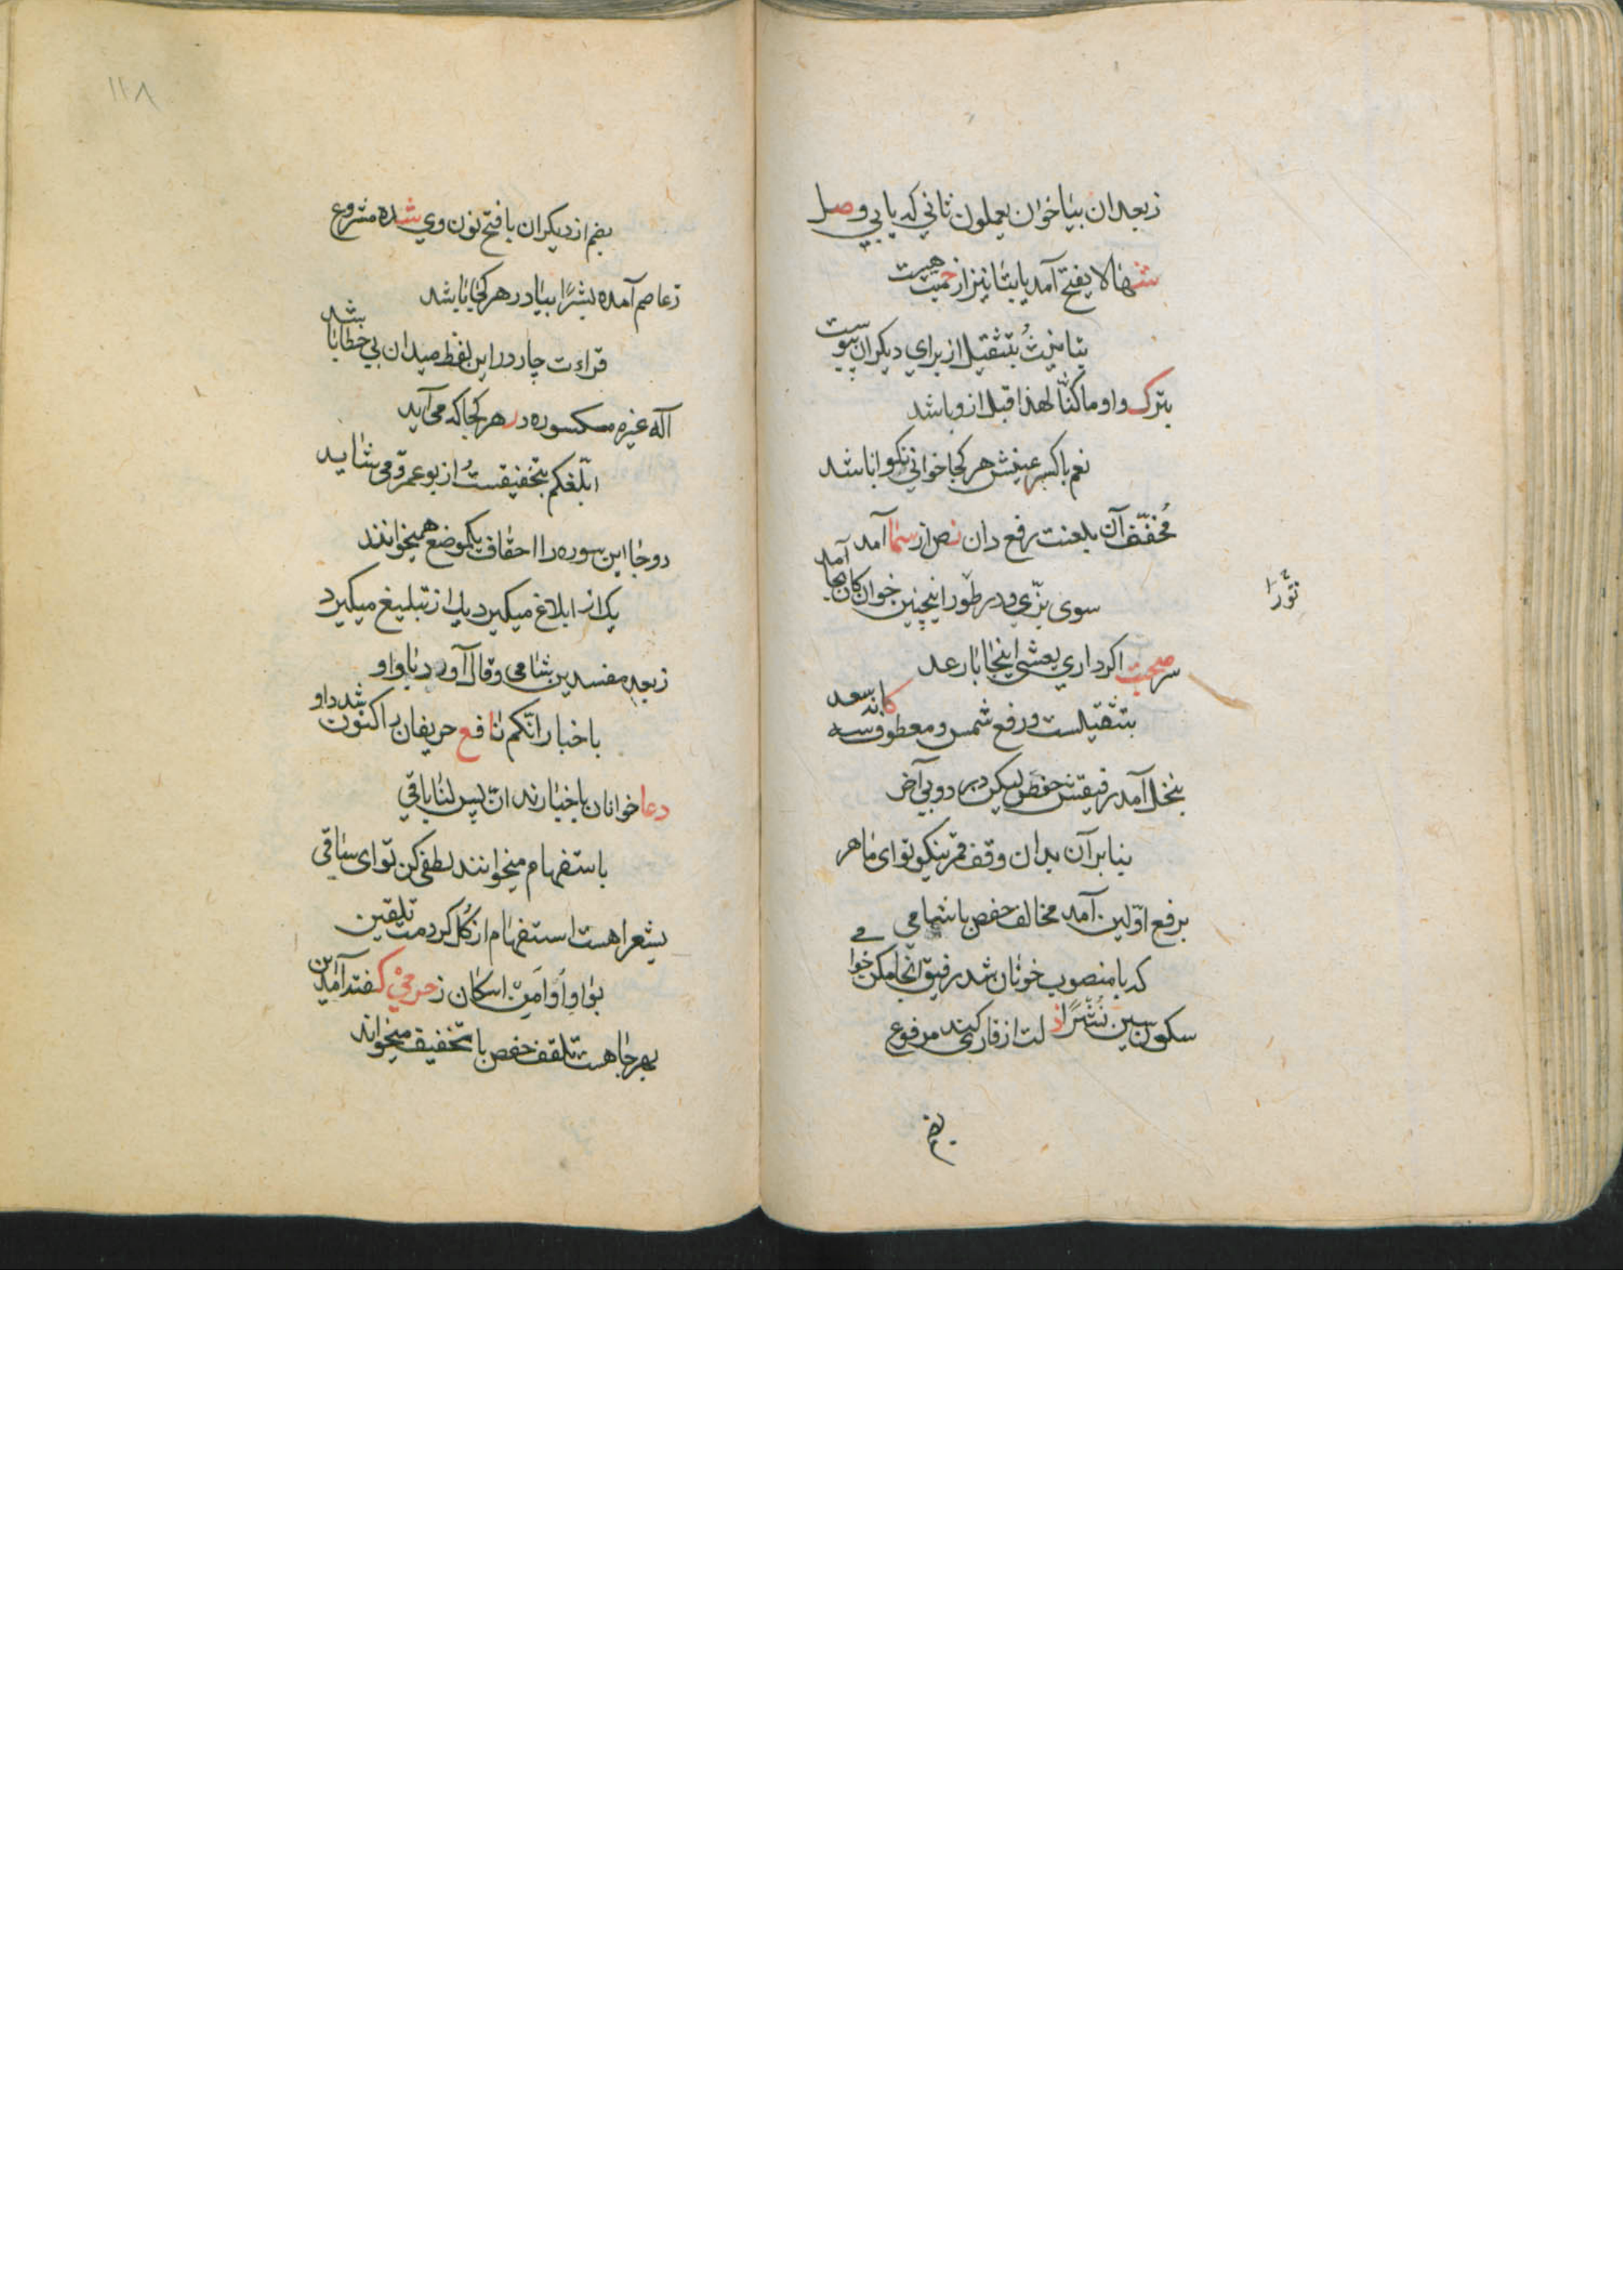 زبعد ان بیا خوان یعملون ثانی که یابی وصل
شها لا یفتح آمد یا بتا نیز از حمیت هست
بتا نیزش بتثقیل از برای دیکران پیوست
بترک واو ما کنّا لهذا قبل از و باشد
نعم با کسر عینش هر کجا خوانی نکو انا شد
مخفّف آن بلعنت رفع دان نص از سما آمد
سوی بزّی و در طور اینچنین خوان کان بجا آمد
صحبت اکر داری یغشی اینجا با رعد
بتثقیلست و رفع شمس و معطوف سه کانه سعد
بنحل آمد رفیقش حفص لیکن در دو بی آخر
بنا بر آن بدان وقف قمر نیکو تو ای ماهر
برفع اوّلین آمد مخالف حفص با شامی
که با منصوب خوانان شد رفیق آنجا مکن خامی
سکون سین نشرًا ذلت از قاری کند مرفوع
نوّرا
بضم
١١٨
بضم از دیکران با فتح نون وی شده مشروع
زعاصم آمده بشرًا ببا در هر کجا باشد
قراءت چار در این لفظ میدان بی خطا باشد
اله غیره مکسوره در هر کجا که می آید
ابلّغکم بتخفیفست از بو عمرو می شاید
دو جا این سوره را احقاف یکموضع همیخوانند
یک از ابلاغ میکیرد یک از تبلیغ میکیرد
زبعد مفسدین شامی وقال آورد با واو
باخبار انّکم نافع حریفان بر اکنون شد داو
دعا خوانان باخبارند انّ پس لنا باقی
باستفهام میخوانند لطفی کن تو ای ساقی
بشعرا هست استفهام از کل کردمت تلقین
بواو أو أمن اسکان ز حرمی کفتد آمد این
بهر جا هست تلقف حفص با تخفیف میخواند